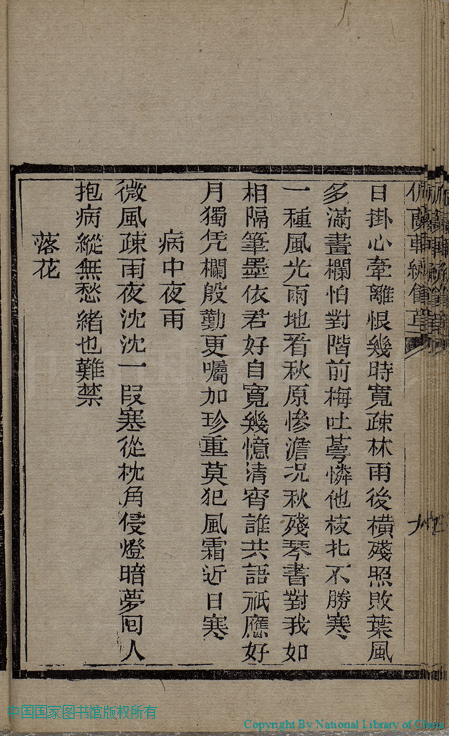 日掛心牽離恨幾時寬疎林雨後橫殘照敗葉風
多滿畫欄怕對階前梅吐萼憐他枝北不勝寒
一種風光兩地看秋原慘澹况秋殘琴書對我如
相隔筆墨依君好自寬幾憶清宵誰共語祇應好
月獨凭欄殷勤更囑加珍重莫犯風霜近日寒
病中夜雨
微風疎雨夜沈沈一段寒從枕角侵燈暗夢回人
抱病縱無愁緒也難禁
落花
中国国家图书馆版权所有
Copyright By National Library of China